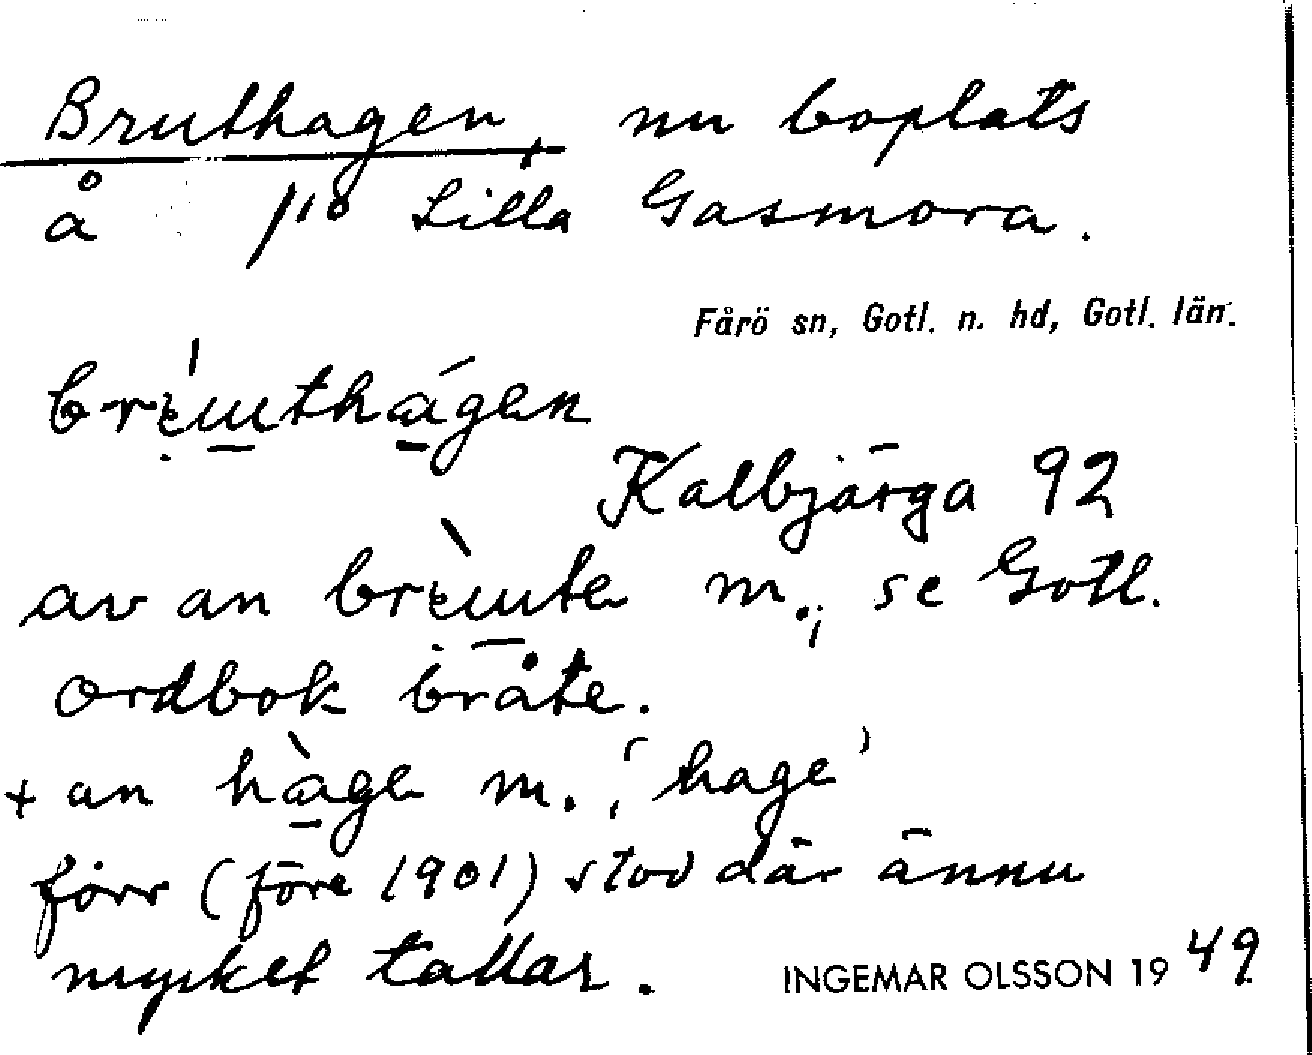 Bruthagen, nu boplats
å 1/10 Lilla Gasmora.
Fårö sn, Gotl. n. hd, Gotl. län.
Kalbjärga 92
av an m.; se Gotl.
Ordbok bråte.
+ an hàge m., 'hage'
förr (före 1901) stod där ännu
mycket tallar.
INGEMAR OLSSON 1949